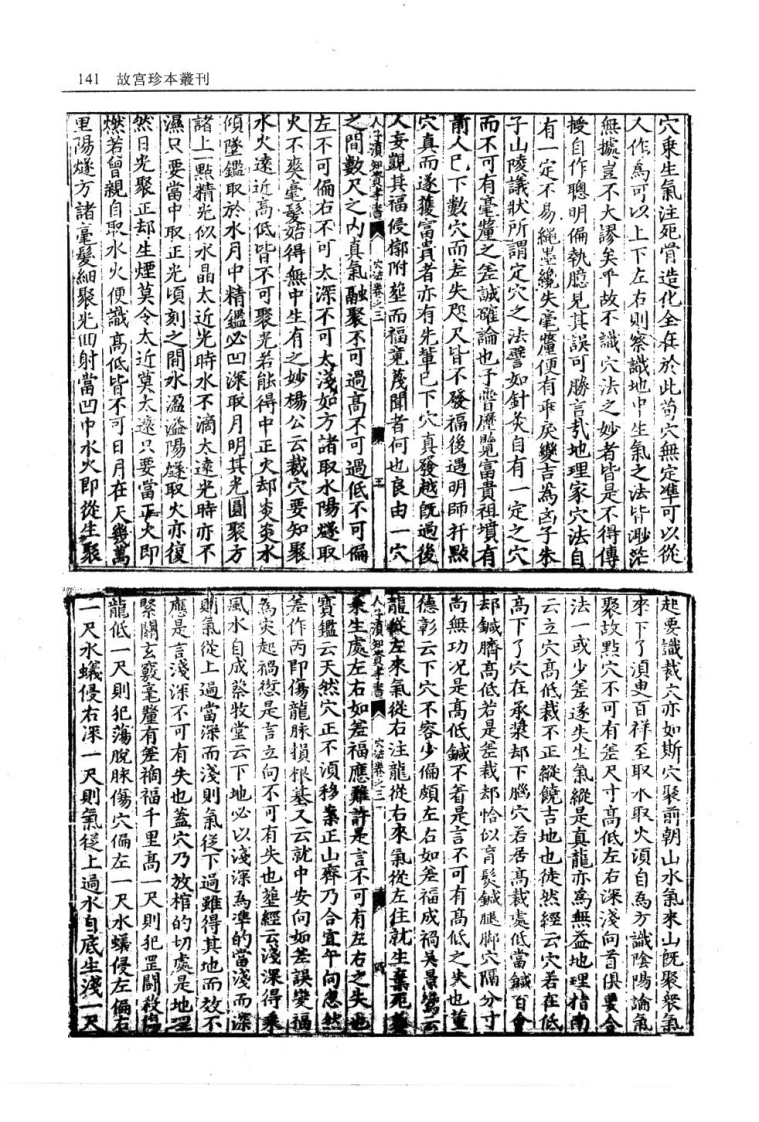 141 故宫珍本叢刊
穴乗生氣注死骨造化全在於此苟穴無定準可以從
人作爲可以上下左右則察識地中生氣之法皆渺茫
無據豈不大謬矣乎故不識穴法之妙者皆是不得傳
授自作聰明偏執臆見其誤可勝言哉地理家穴法自
有一定不易繩墨纔失毫釐便有乖戾變吉爲凶子朱
子山陵議狀所謂定穴之法譬如針灸自有一定之穴
而不可有毫釐之差誠確論也予嘗歷覽富貴祖墳有
前人已下數穴而差失咫尺皆不發福後遇明師扦點
穴真而遂獲富貴者亦有先輩已下穴真發越旣過後
人妄覬其福侵擲附塟而福竟蔑聞者何也良由一穴
人子須知資孝書 穴法卷之三 三
之間數尺之内真氣融聚不可過高不可過低不可偏
左不可偏右不可太深不可太淺如方諸取水陽燧取
火不爽毫髮始得無中生有之妙楊公云裁穴要知聚
水火遠近高低皆不可聚光若能得中正火却炎炎水
傾墜鑑取於水月中精鑑必凹深取月明其光圓聚方
諸上一點精光似水晶太近光時水不滴太遠光時亦不
濕只要當中取正光頃刻之間水盈溢陽燧取火亦復
然日光聚正却生煙莫令太近莫太遠只要當正火即
燃若曾親自取水火便識高低皆不可日月在天幾萬
里陽燧方諸毫髮細聚光回射當凹中水火即從生聚
起要識裁穴亦如斯穴聚前朝山水氣來山旣聚衆氣
來下了須更百祥至取水取火須自爲方識陰陽論氣
聚故點穴不可有差尺寸高低左右深淺向首俱要合
法一或少差遂失生氣縱是真龍亦爲無益地理指南
云立穴高低裁不正縱饒吉地也徒然經云穴若在低
高下了穴在承漿却下腦穴若居高裁處低當鍼百會
却鍼臍高低若是差裁却恰似盲醫鍼腿脚穴隔分寸
尚無功况是高低鍼不着是言不可有高低之失也董
德彰云下穴不容少偏頗左右如差福成禍吳景鸞云
龍從左來氣從右注龍從右來氣從左住就生棄死墓
人子須知資孝書 穴法卷之三 四
乘生處左右如差福應難許是言不可有左右之失也
寳鑑云天然穴正不須移案正山齊乃合宜午向忽然
差作丙即傷龍脉損根基又云就中安向如差誤變福
爲災起禍愆是言立向不可有失也塟經云淺深得乘
風水自成蔡牧堂云下地必以淺深爲凖的當淺而深
則氣從上過當深而淺則氣從下過雖得其地而效不
應是言淺深不可有失也蓋穴乃放棺的切處是地理
緊關玄竅毫釐有差禍福千里高一尺則犯罡鬪殺傷
龍低一尺則犯蕩脱脉傷穴偏左一尺水蟻侵左偏右
一尺水蟻侵右深一尺則氣從上過水自底生淺一尺